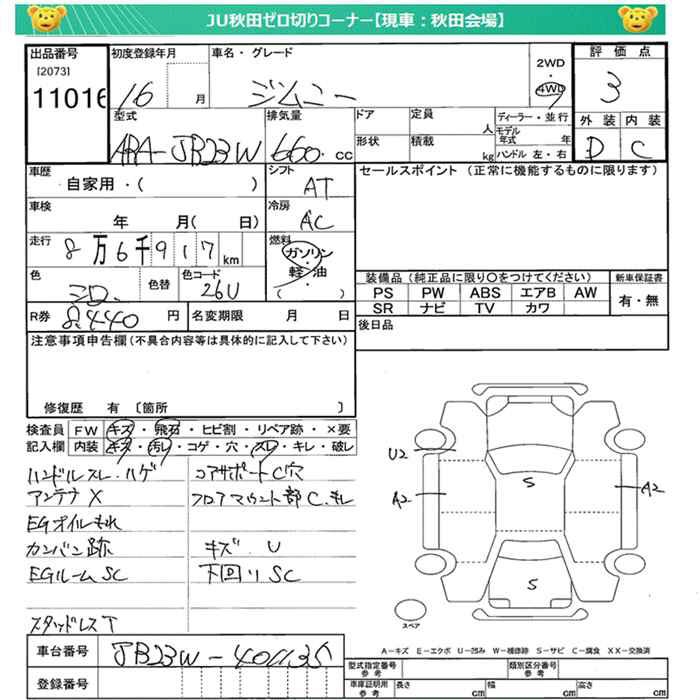 JU秋田ゼロ切りコーナー【現車：秋田会場】
出品番号 初度登録年月 車名・グレード 2WD・4WD 評価点
[2073]
11016 16 月 ジムニー 3
型式 排気量 ドア 定員 人 ディーラー・並行 外装 内装
ABA-JB23W 660 cc 形状 積載 kg モデル年式 年 ハンドル 左・右 D C
車歴 自家用・( ) シフト AT セールスポイント (正常に機能するものに限ります)
車検 年 月( 日) 冷房 AC
走行 8万6千917km 燃料 ガソリン・軽油 ( )
色 シロ 色替 色コード 26U
装備品 (純正品に限り〇をつけてください) 新車保証書
PS PW ABS エアB AW 有・無
SR ナビ TV カワ
R券 8.440 円 名変期限 月 日 後日品
注意事項申告欄(不具合内容等は具体的に記入して下さい)
修復歴 有 〔箇所 〕
検査員 FW キズ・飛石・ヒビ割・リペア跡・×要
記入欄 内装 キズ・汚れ・コゲ・穴・スレ・キレ・破レ
ハンドルスレ・ハゲ
アンテナX
EGオイルもれ
カンバン跡
EGルームSC
スタッドレスT
コアサポートC穴
フロアマウント部C.キレ
キズ. U
下回りSC
U2
A2
S
A2
S
スペア
A-キズ E-エクボ U-凹み W-補修跡 S-サビ C-腐食 XX-交換済
車台番号 JB23W-401135
登録番号
型式指定番号 参考 類別区分番号 参考
車庫証明用 参考 長さ cm 幅 cm 高さ cm